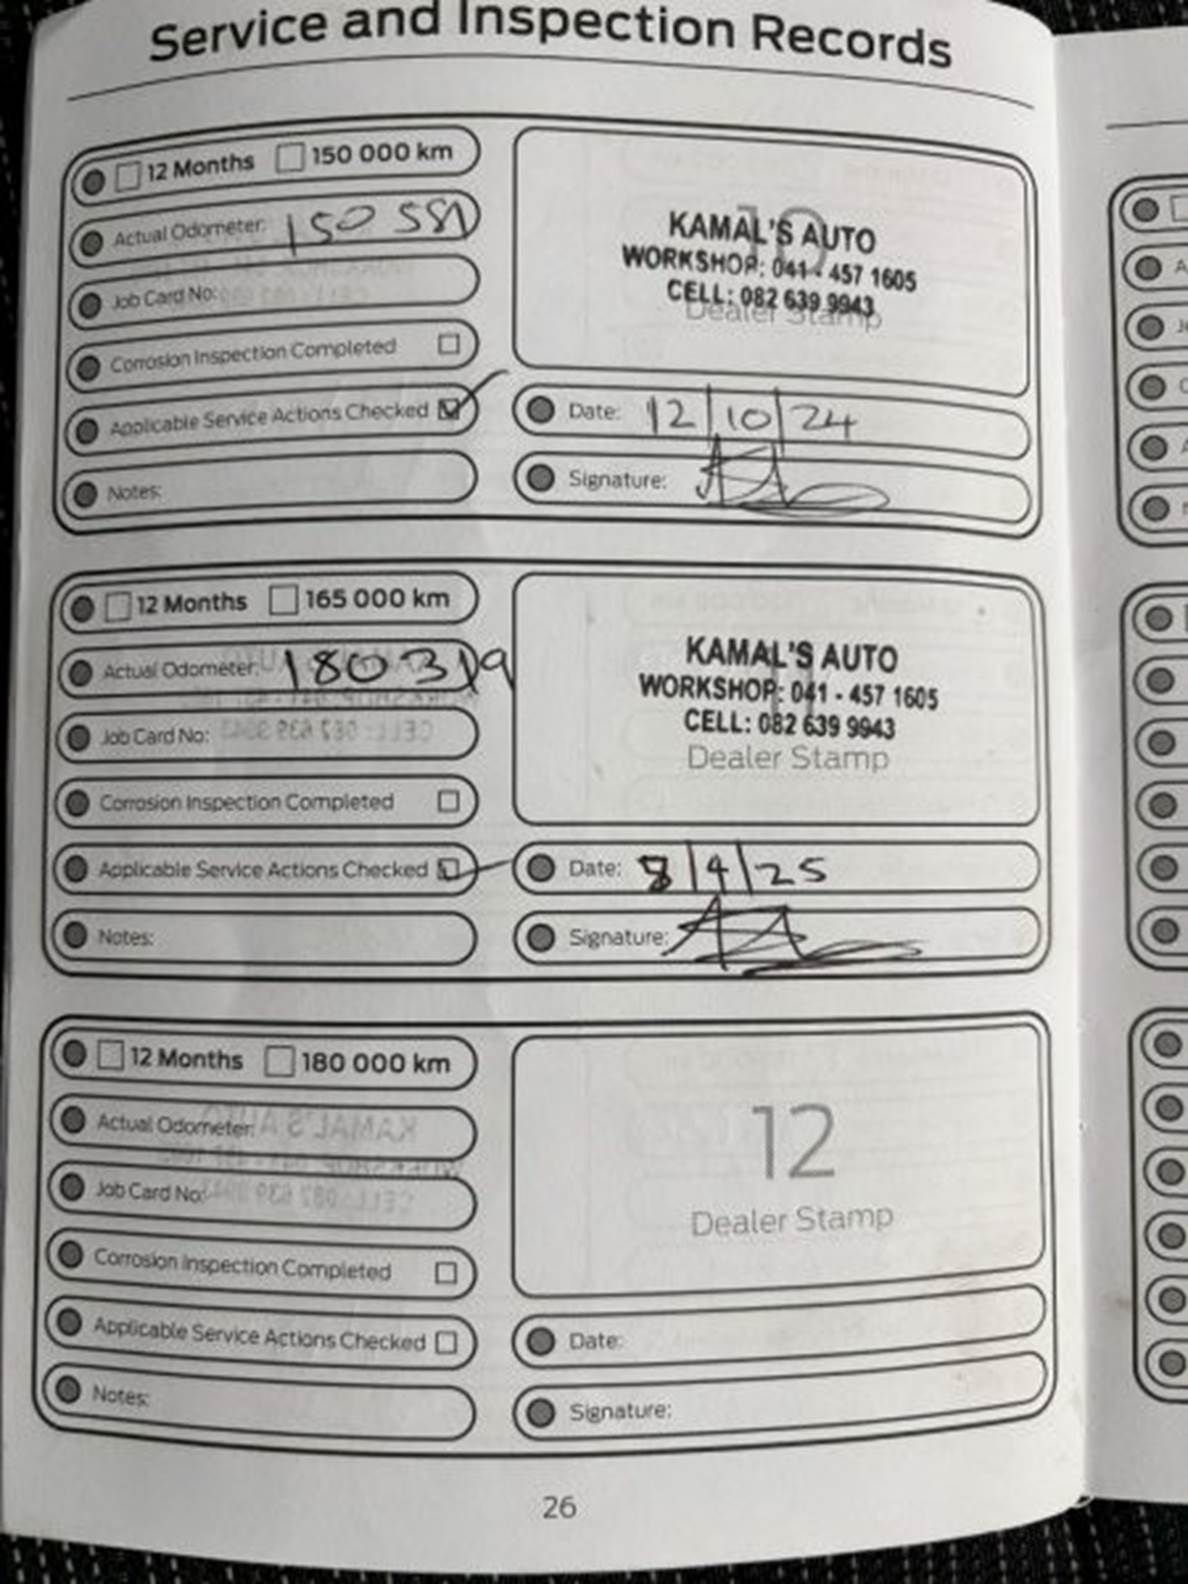 Service and Inspection Records
12 Months 150 000 km
Actual Odometer: 150 581
Job Card No:
Corrosion Inspection Completed
Applicable Service Actions Checked
Notes:
10
KAMAL'S AUTO
WORKSHOP: 041 - 457 1605
CELL: 082 639 9943
Dealer Stamp
Date: 12/10/24
Signature:
12 Months 165 000 km
Actual Odometer: 180319
Job Card No:
Corrosion Inspection Completed
Applicable Service Actions Checked
Notes:
11
KAMAL'S AUTO
WORKSHOP: 041 - 457 1605
CELL: 082 639 9943
Dealer Stamp
Date: 8/4/25
Signature:
12 Months 180 000 km
Actual Odometer:
Job Card No:
Corrosion Inspection Completed
Applicable Service Actions Checked
Notes:
12
Dealer Stamp
Date:
Signature:
26